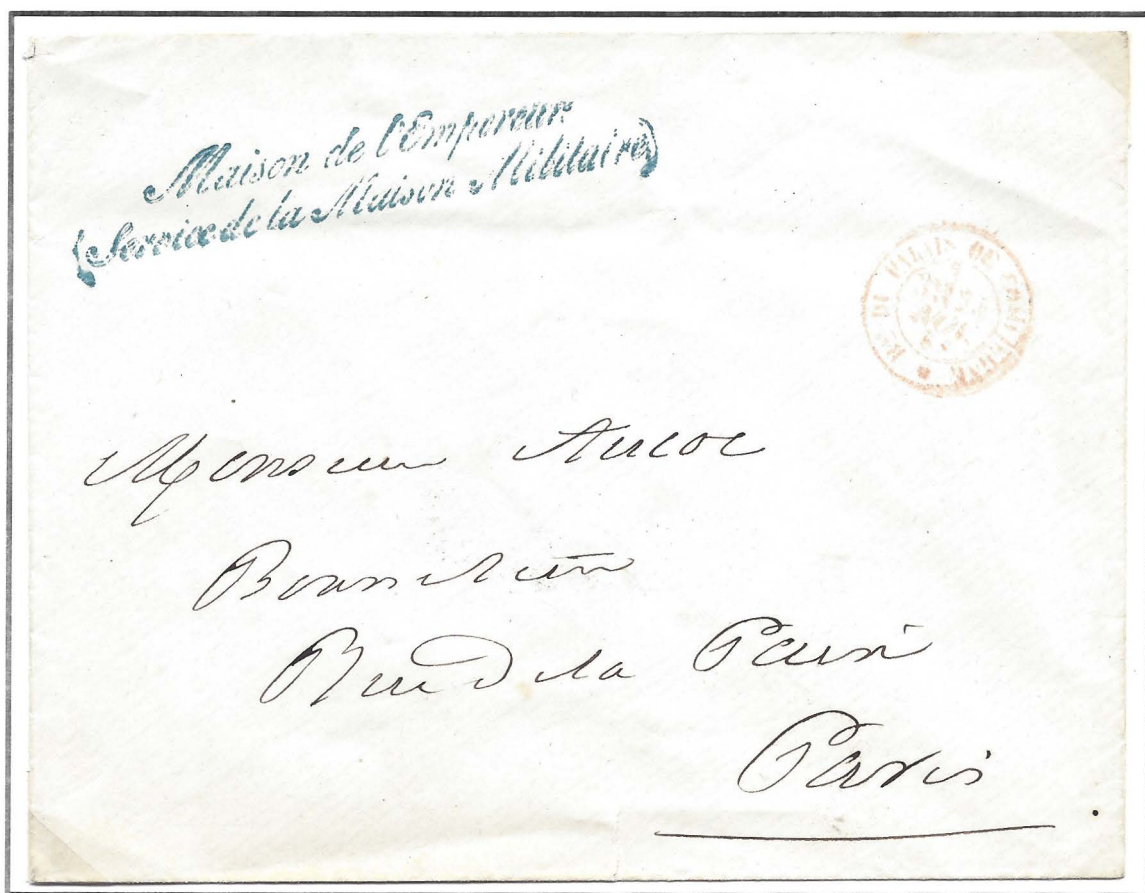 Maison de l'Empereur
(Service de la Maison Militaire)
Bau DU PALAIS DE COMPIEGNE
Monsieur Aucoc
Rue de la Paix
Paris